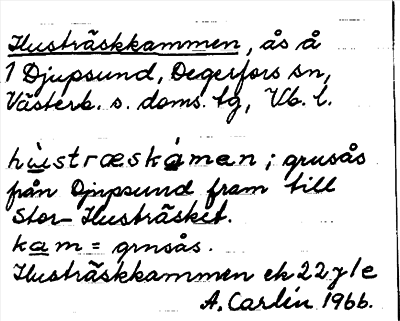 Husträskkammen, ås å
1 Djupsund, Degerfors sn,
Västerb. s. doms. tg, Vb. l.
hùstræskámen; grusås
från Djupsund fram till
Stor-Husträsket.
kam = grusås.
Husträskkammen ek 22 y 1 e
A. Carlin 1966.